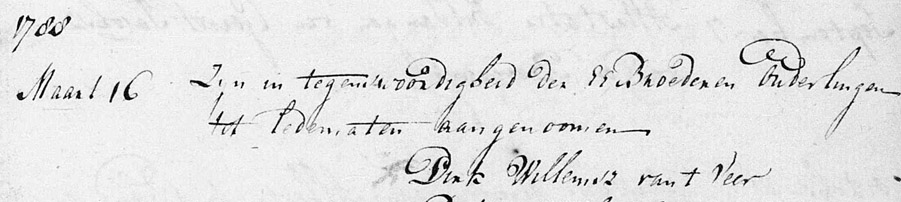 1788
Maart 16 Zijn in tegenswoordigheid der EE Broederen Ouderlingen
tot Ledematen aangenoomen
Dirk Willemsz van t Veer